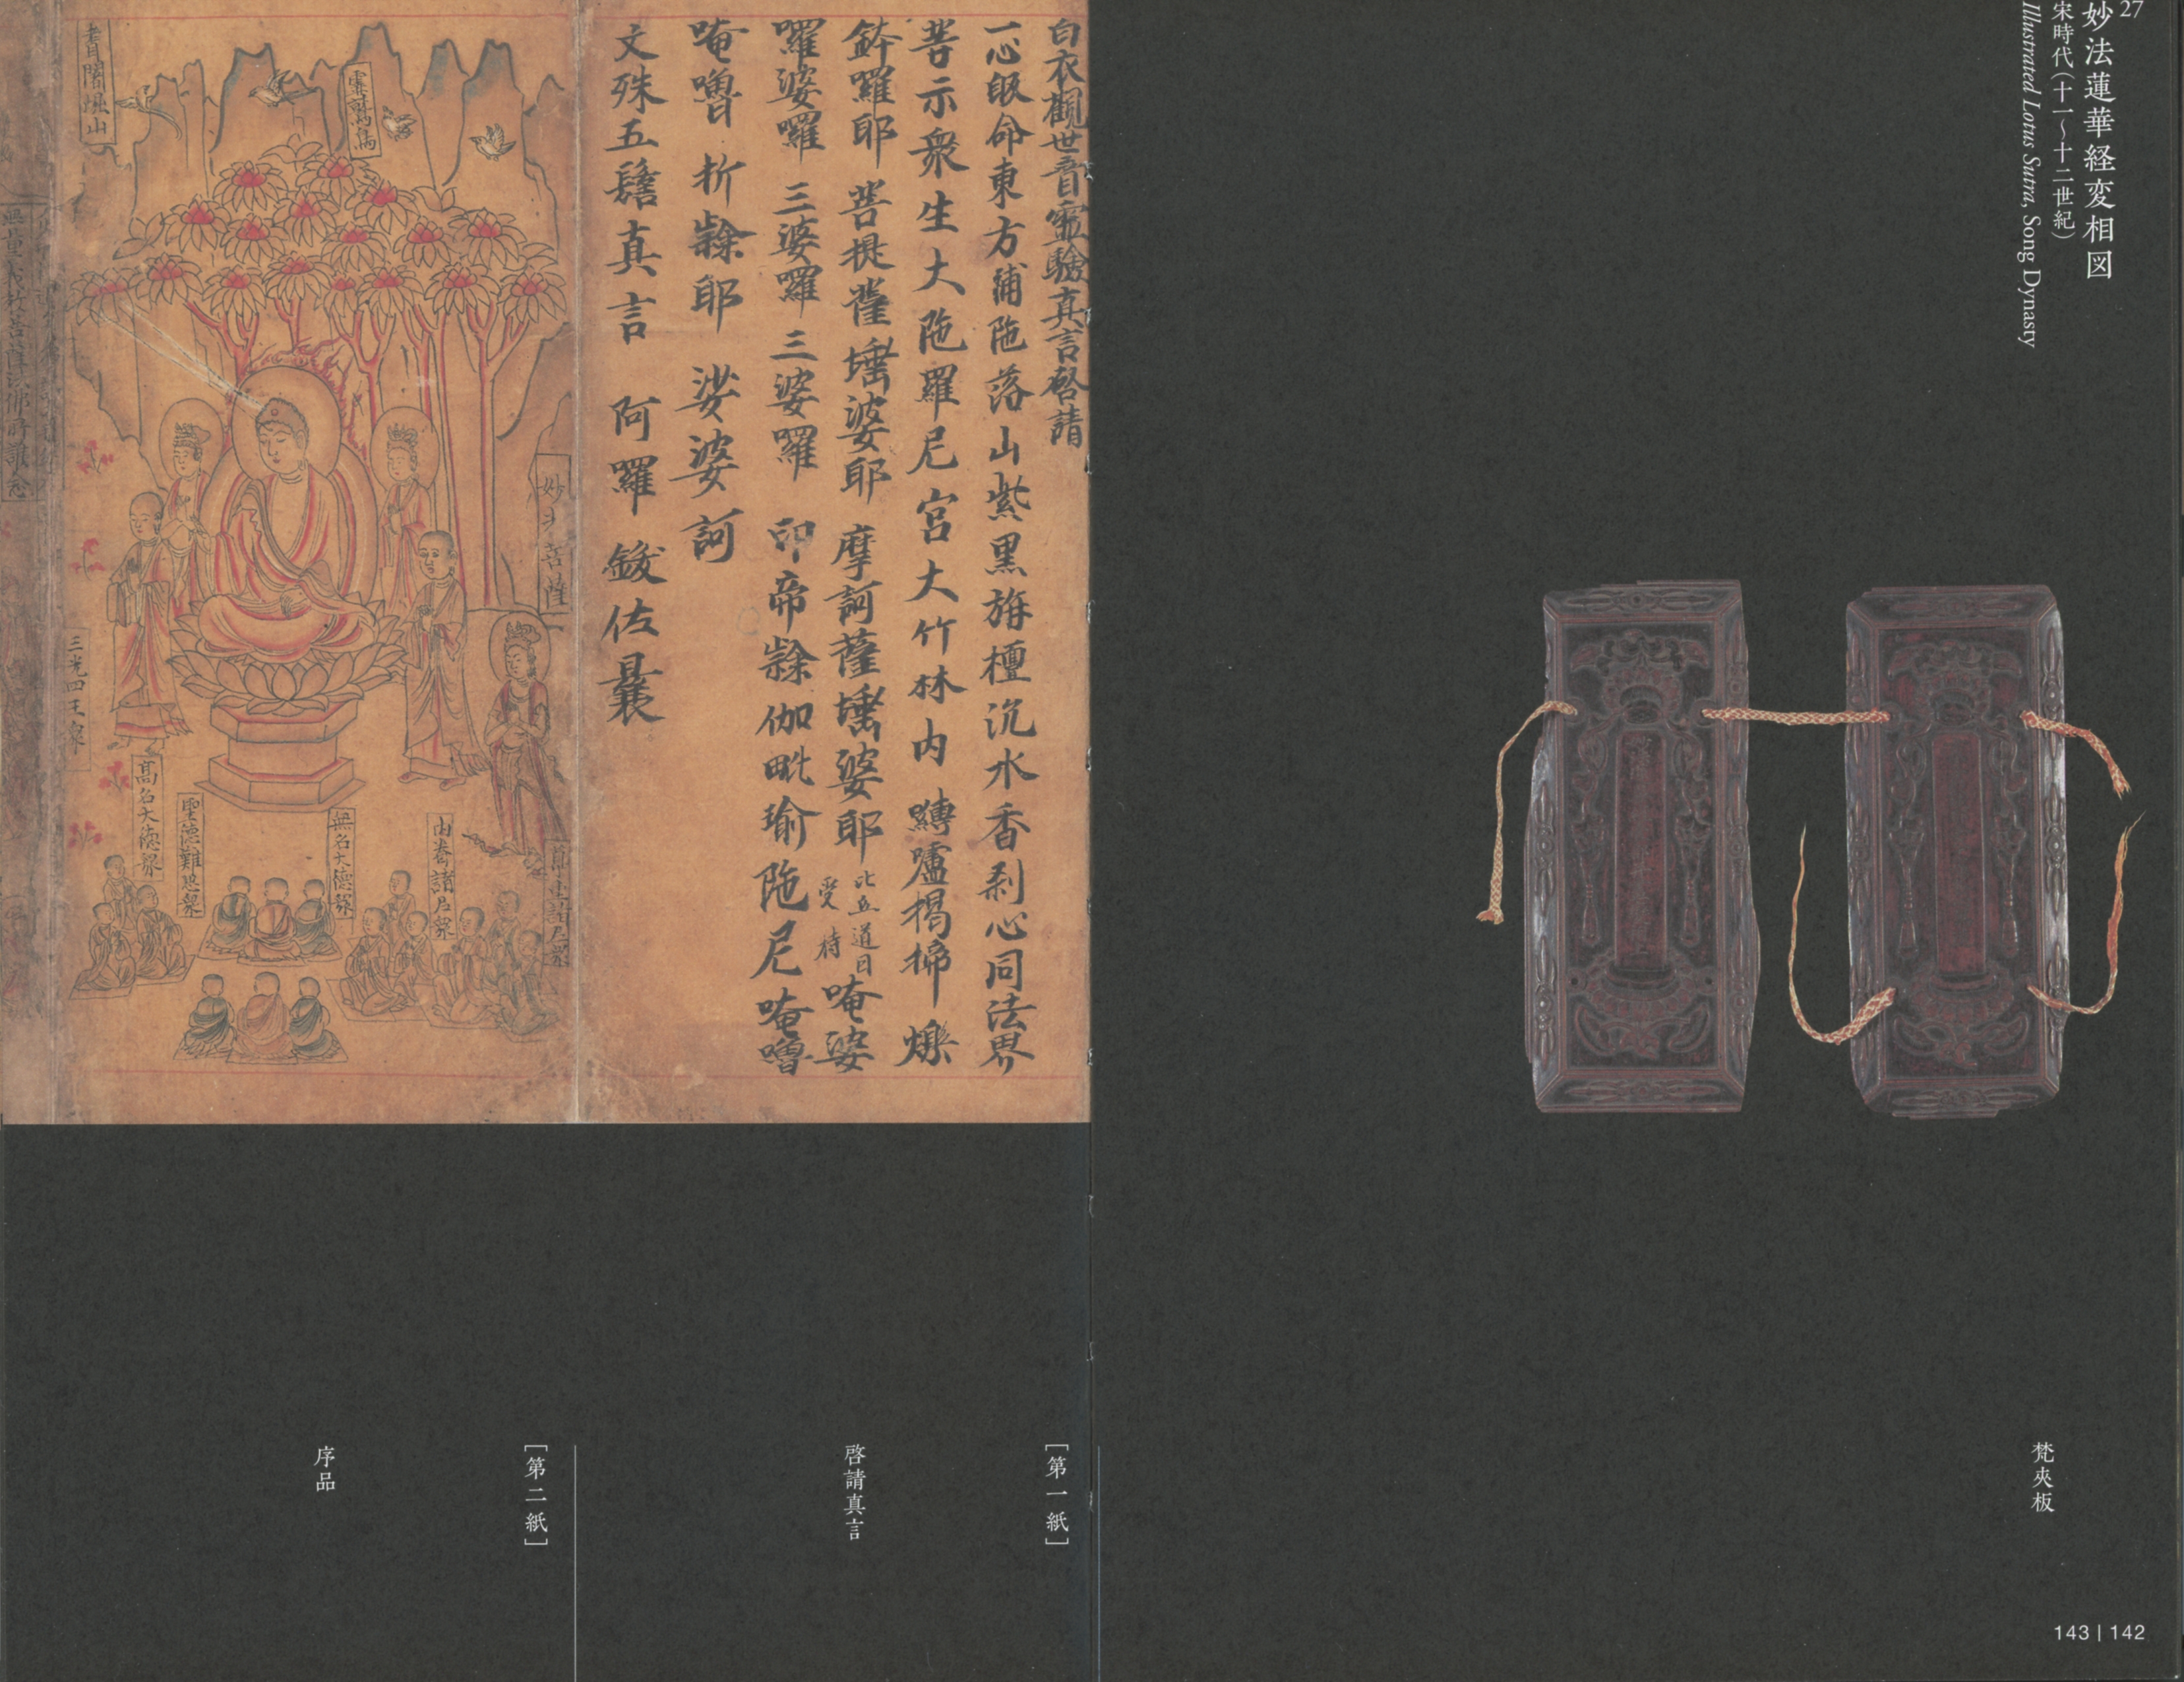 27
妙法蓮華経変相図
宋時代(十一〜十二世紀)
Illustrated Lotus Sutra, Song Dynasty
梵夾板
143 | 142
白衣觀世音靈驗真言啓請
一心皈命東方浦陁落山紫黑旃檀沉水香剎心同法界
普示衆生大陁羅尼宮大竹林内
婆耶 摩訶薩埵婆耶
此五道日受持
唵婆
囉婆囉 三婆囉 三婆囉 印帝 伽毗瑜陁尼唵嚕
唵嚕 折 耶 娑婆訶
文殊五髻真言 阿囉 佐曩
[第一紙]
啓請真言
耆闍堀山
靈鷲鳥
妙光菩薩
三光四王衆
高名大德衆
聖德難思衆
無名大德衆
内眷諸尼衆
[第二紙]
序品
無量義教菩薩法佛所護念